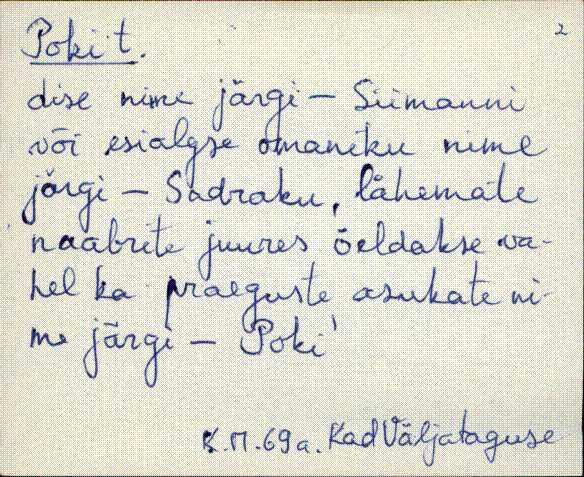 Poki t.
2
dise nime järgi — Siimanni
või esialgse omaniku nime
järgi — Sadraku, lähemate
naabrite juures öeldakse va-
hel ka praeguste asukate ni-
me järgi — Poki'
K.M.69a. Kad Väljataguse